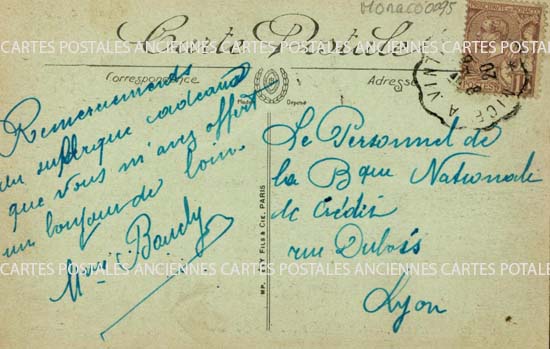 Monaco 0095
Carte Postale
ANCIENNES CARTES POSTALES ANCIENNES CARTES POSTALES ANCIENNES CARTES POSTALES
Correspondance
Adresse
Modèle
Déposé
Remerciements
du superbe cadeau
que vous m'avez offert
un bonjour de loin.
NICE A VINT
Le Personnel de
la Bque Nationale
de Crédit
rue Dubois
Lyon
CARTES POSTALES ANCIENNES CARTES POSTALES ANCIENNES CARTES POTALES
FILS & CIE, PARIS